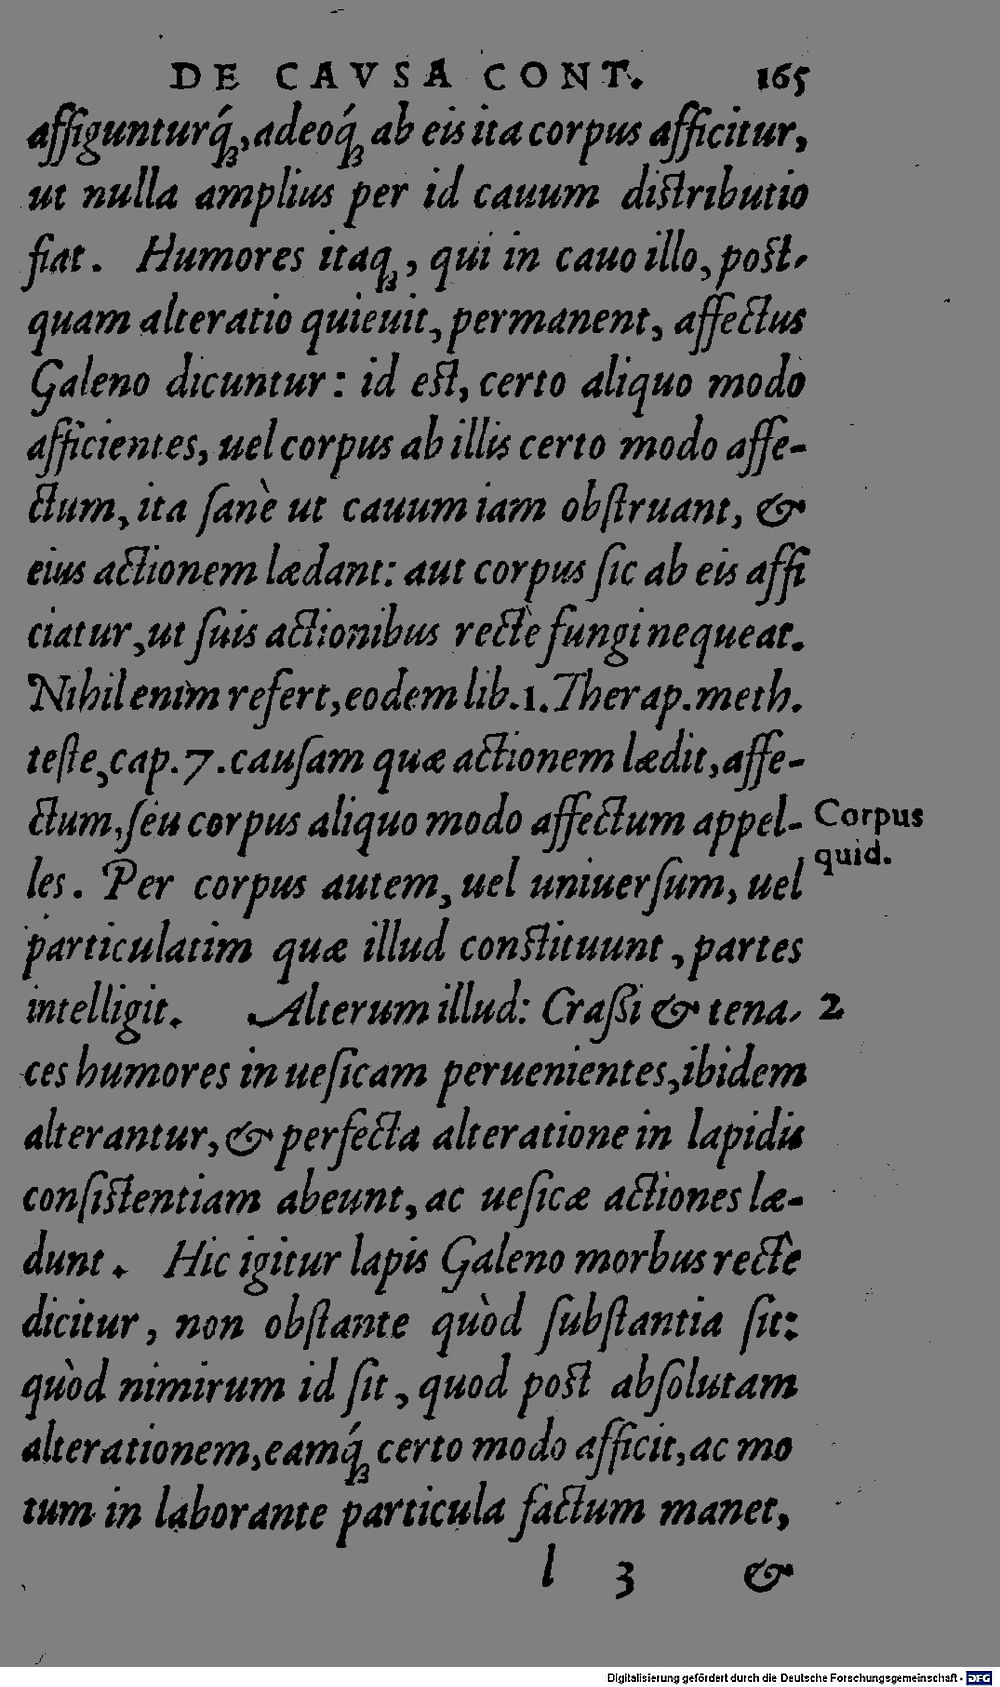 DE CAVSA CONT. 165
affigunturq́;, adeoq́; ab eis ita corpus afficitur,
ut nulla amplius per id cauum distributio
fiat. Humores itaq;, qui in cauo illo, post-
quam alteratio quieuit, permanent, affectus
Galeno dicuntur: id est, certo aliquo modo
afficientes, uel corpus ab illis certo modo affe-
ctum, ita ſanè ut cauum iam obſtruant, &
eius actionem lædant: aut corpus ſic ab eis affi
ciatur, ut ſuis actionibus rectè fungi nequeat.
Nihil enim refert, eodem lib.1. Therap. meth.
teſte, cap.7. cauſam quæ actionem lædit, affe-
ctum, ſeu corpus aliquo modo affectum appel-
Corpus
quid.
les. Per corpus autem, uel uniuerſum, uel
particulatim quæ illud constituunt, partes
intelligit. Alterum illud: Craßi & tena-
2
ces humores in ueſicam peruenientes, ibidem
alterantur, & perfecta alteratione in lapidis
conſistentiam abeunt, ac ueſicæ actiones læ-
dunt. Hic igitur lapis Galeno morbus rectè
dicitur, non obſtante quòd ſubſtantia ſit:
quòd nimirum id ſit, quod post abſolutam
alterationem, eamq́; certo modo afficit, ac mo
tum in laborante particula factum manet,
l 3 &
Digitalisierung gefördert durch die Deutsche Forschungsgemeinschaft - DFG